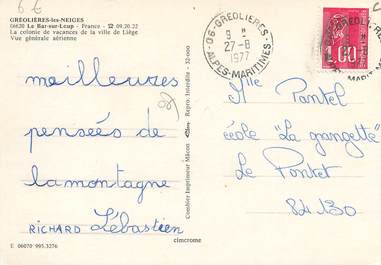 6 €
GRÉOLIÈRES-les-NEIGES
06620 Le Bar-sur-Loup - France - ☎ 09.20.22
La colonie de vacances de la ville de Liège
Vue générale aérienne
meilleures
pensées de
la montagne
RICHARD Sébastien
E 06070 995.3276
Combier Imprimeur Mâcon
Repro. Interdite - 32-000
cimcrome
06 - GREOLIERES
9 H
27-8
1977
ALPES-MARITIMES
1.00
Mlle Pantel
école "La grangette"
Le Pontet
84130